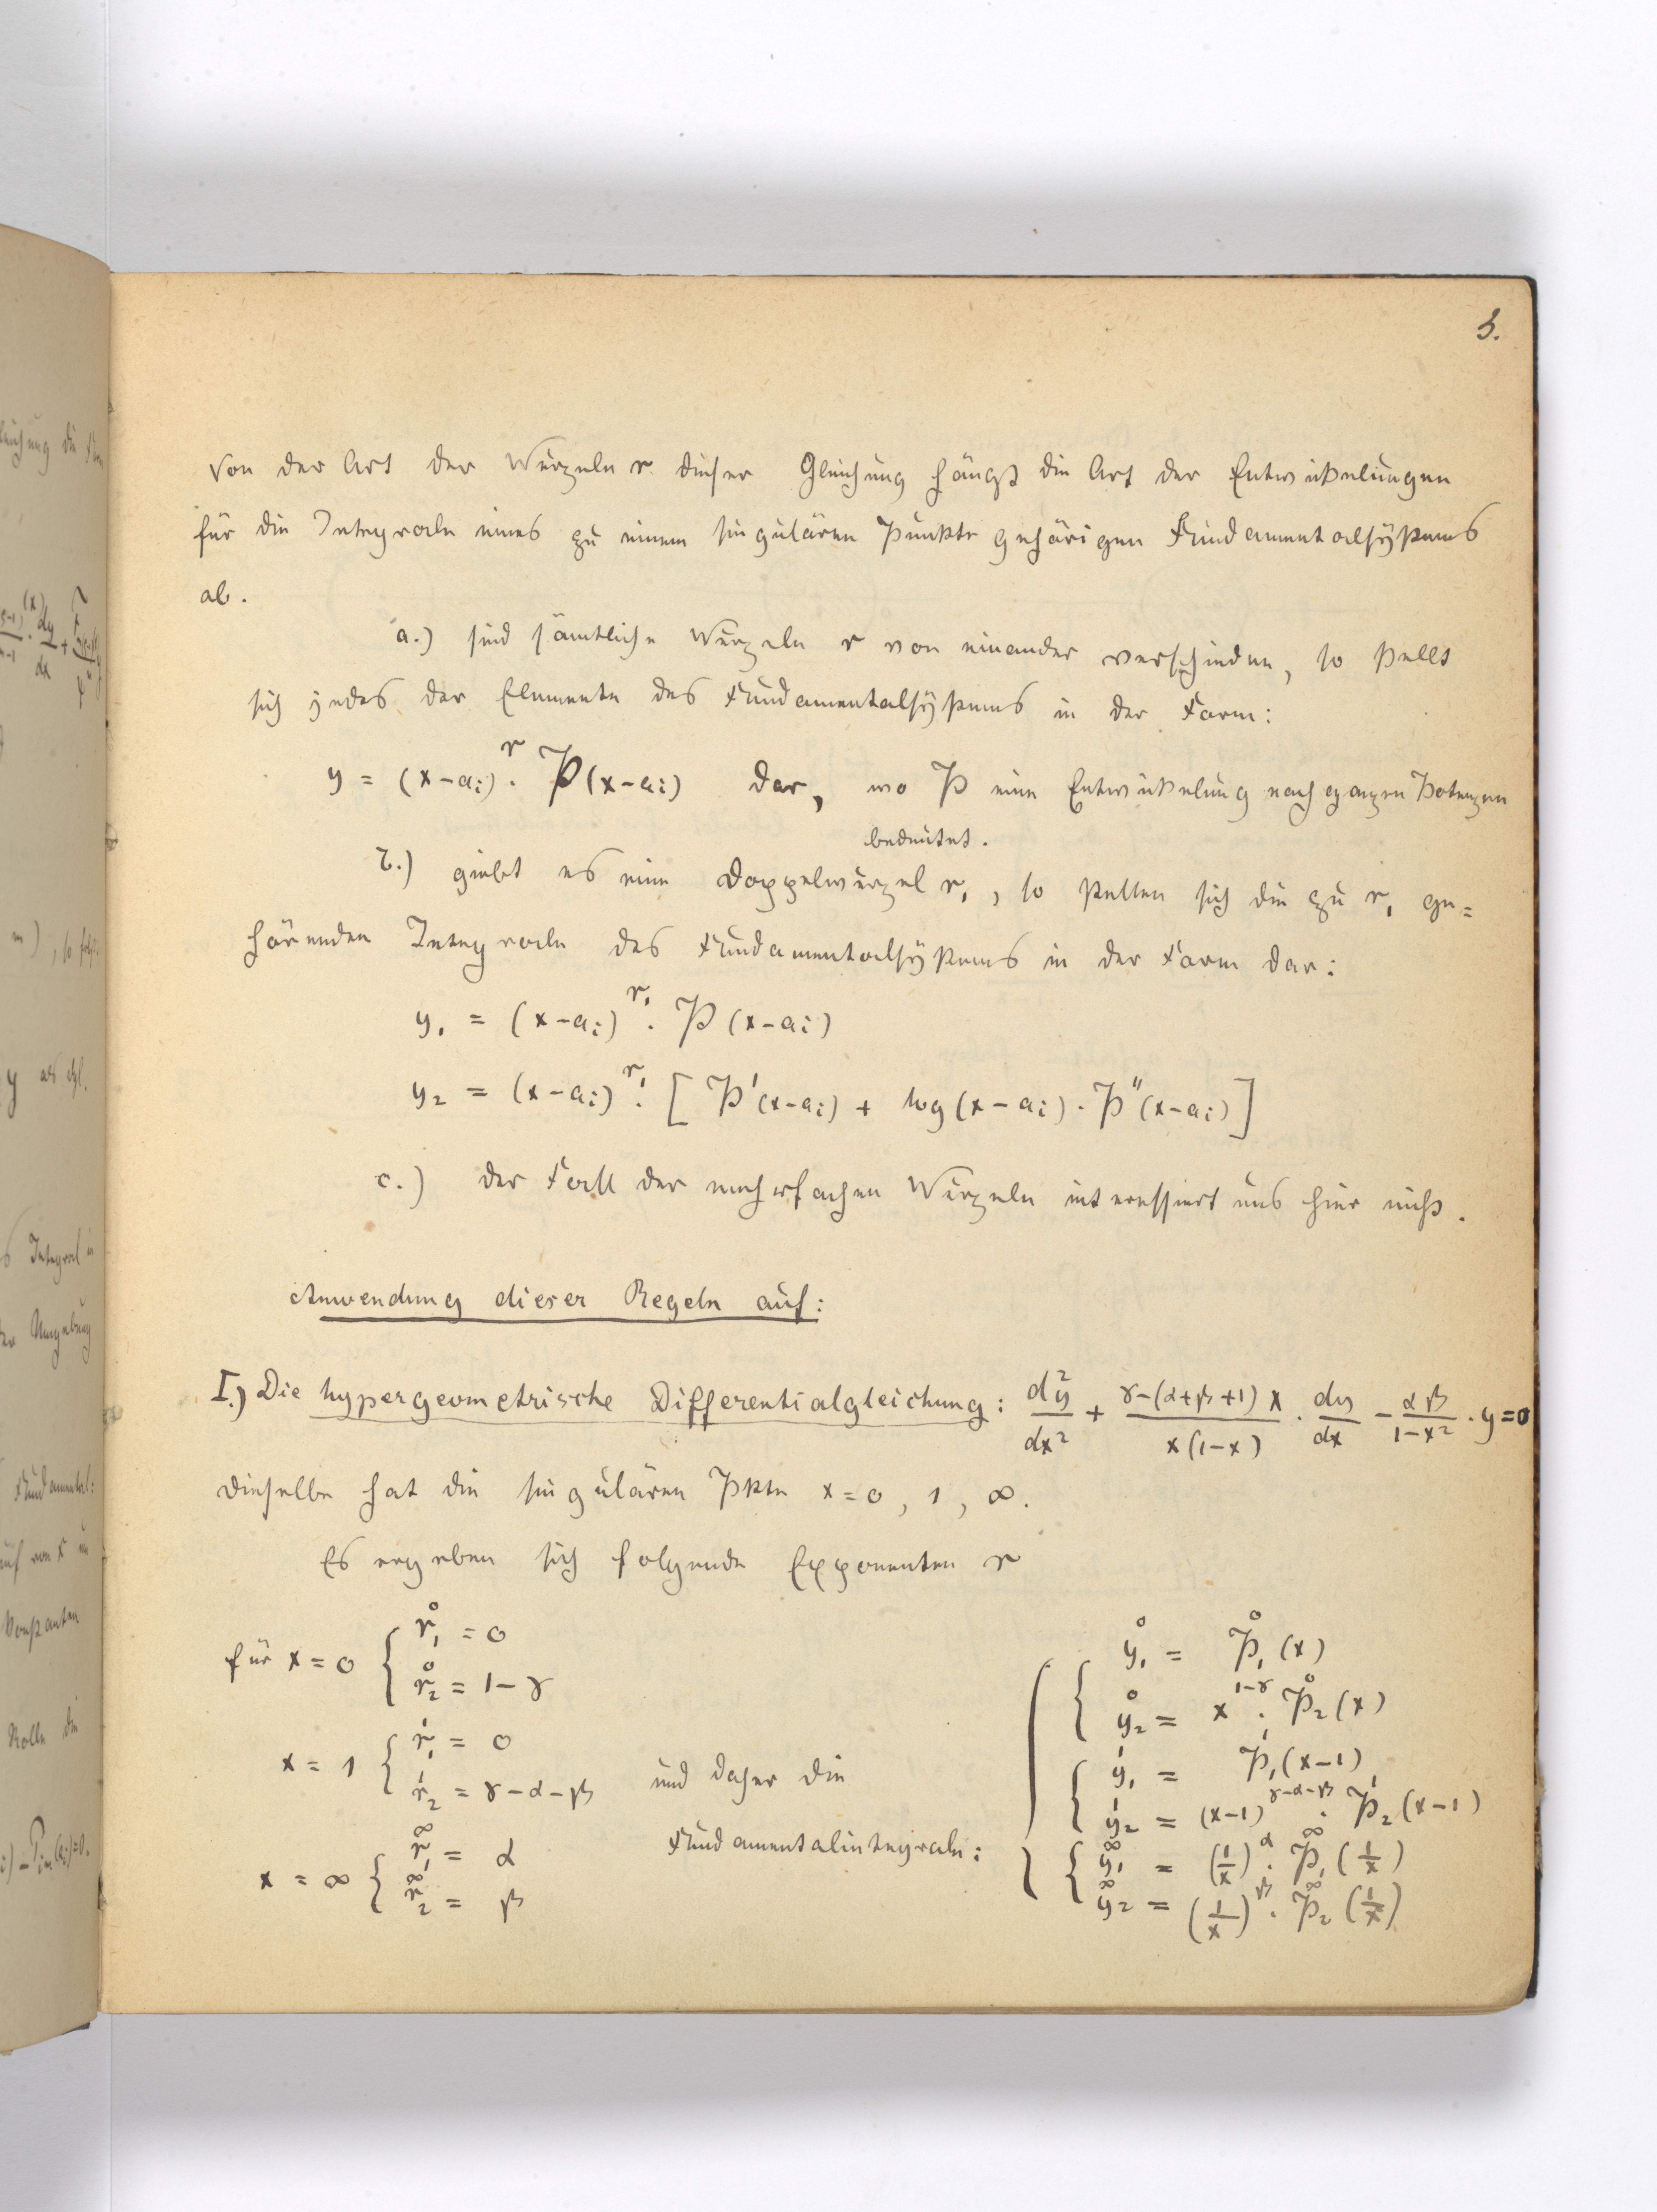 3.
Von der Art der Wurzeln r dieser Gleichung hängt die Art der Entwickelungen
für die Integrale eines zu einem singulären Punkte gehörigen Fundamentalsystems
ab.
a.) sind sämtliche Wurzeln r von einander verschieden, so stellt
sich jedes der Elemente des Fundamentalsystems in der Form:
y = (x-a_i)^r · P(x-a_i) dar, wo P eine Entwickelung nach ganzen Potenzen
bedeutet.
b.) giebt es eine Doppelwurzel r₁, so stellen sich die zu r₁ ge=
hörenden Integrale des Fundamentalsystems in der Form dar:
y₁ = (x-a_i)^{r₁} · P(x-a_i)
y₂ = (x-a_i)^{r₁} · [P'(x-a_i) + log(x-a_i) · P''(x-a_i)]
c.) der Fall der mehrfachen Wurzeln interessiert uns hier nicht.
Anwendung dieser Regeln auf:
I.) Die hypergeometrische Differentialgleichung: d²y/dx² + (γ-(α+β+1)x)/(x(1-x)) · dy/dx - αβ/(1-x²) · y = 0
Dieselbe hat die singulären Pkte x = 0, 1, ∞.
Es ergeben sich folgende Exponenten r
für x = 0 { r₁⁰ = 0
r₂⁰ = 1-γ
x = 1 { r₁¹ = 0
r₂¹ = γ-α-β
x = ∞ { r₁^∞ = α
r₂^∞ = β
und daher die
Fundamentalintegrale:
{ y₁⁰ = P₁⁰(x)
y₂⁰ = x^{1-γ} · P₂⁰(x)
{ y₁¹ = P₁¹(x-1)
y₂¹ = (x-1)^{γ-α-β} · P₂¹(x-1)
{ y₁^∞ = (1/x)^α · P₁^∞(1/x)
y₂^∞ = (1/x)^β · P₂^∞(1/x)